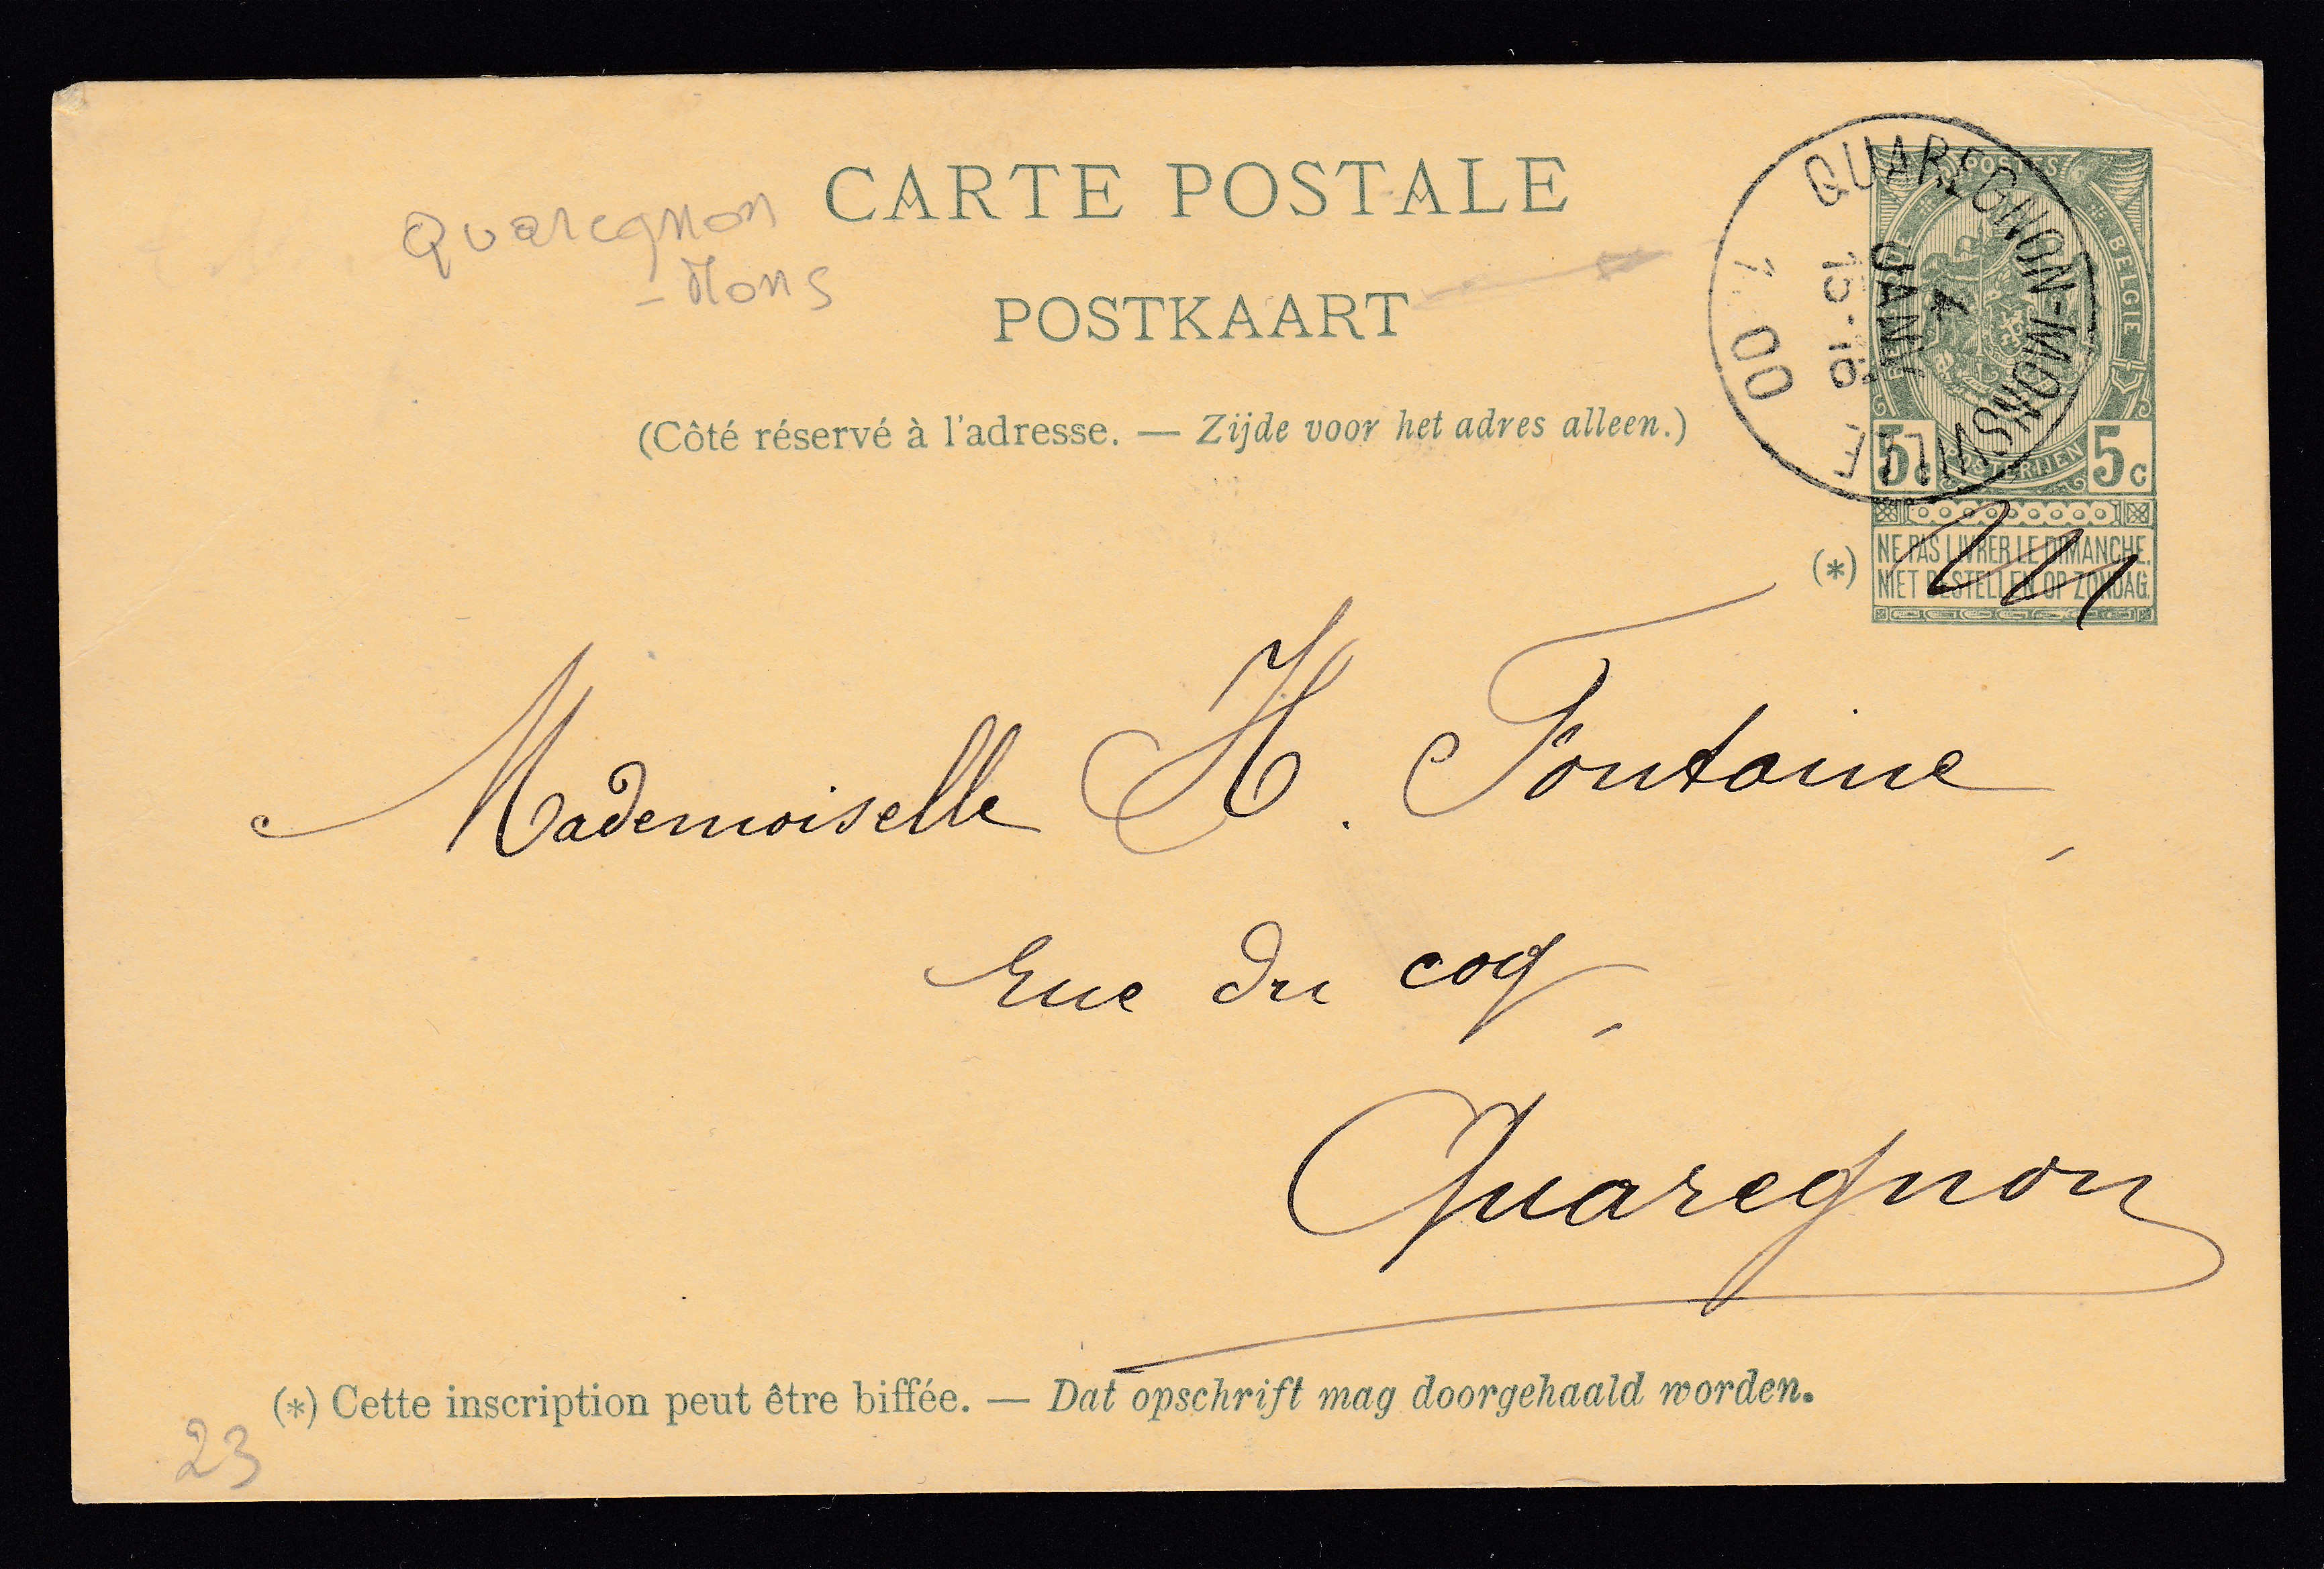 CARTE POSTALE
Quaregnon
- Mons
POSTKAART
(Côté réservé à l'adresse. — Zijde voor het adres alleen.)
QUAREGNON-MONSVILLE
4
JANV
15-16
00
POSTES
BELGIE
POSTERIJEN
5c 5c
(*) NE PAS LIVRER LE DIMANCHE.
NIET BESTELLEN OP ZONDAG.
Mademoiselle H. Fontaine,
rue du coq,
Quaregnon
(*) Cette inscription peut être biffée. — Dat opschrift mag doorgehaald worden.
23